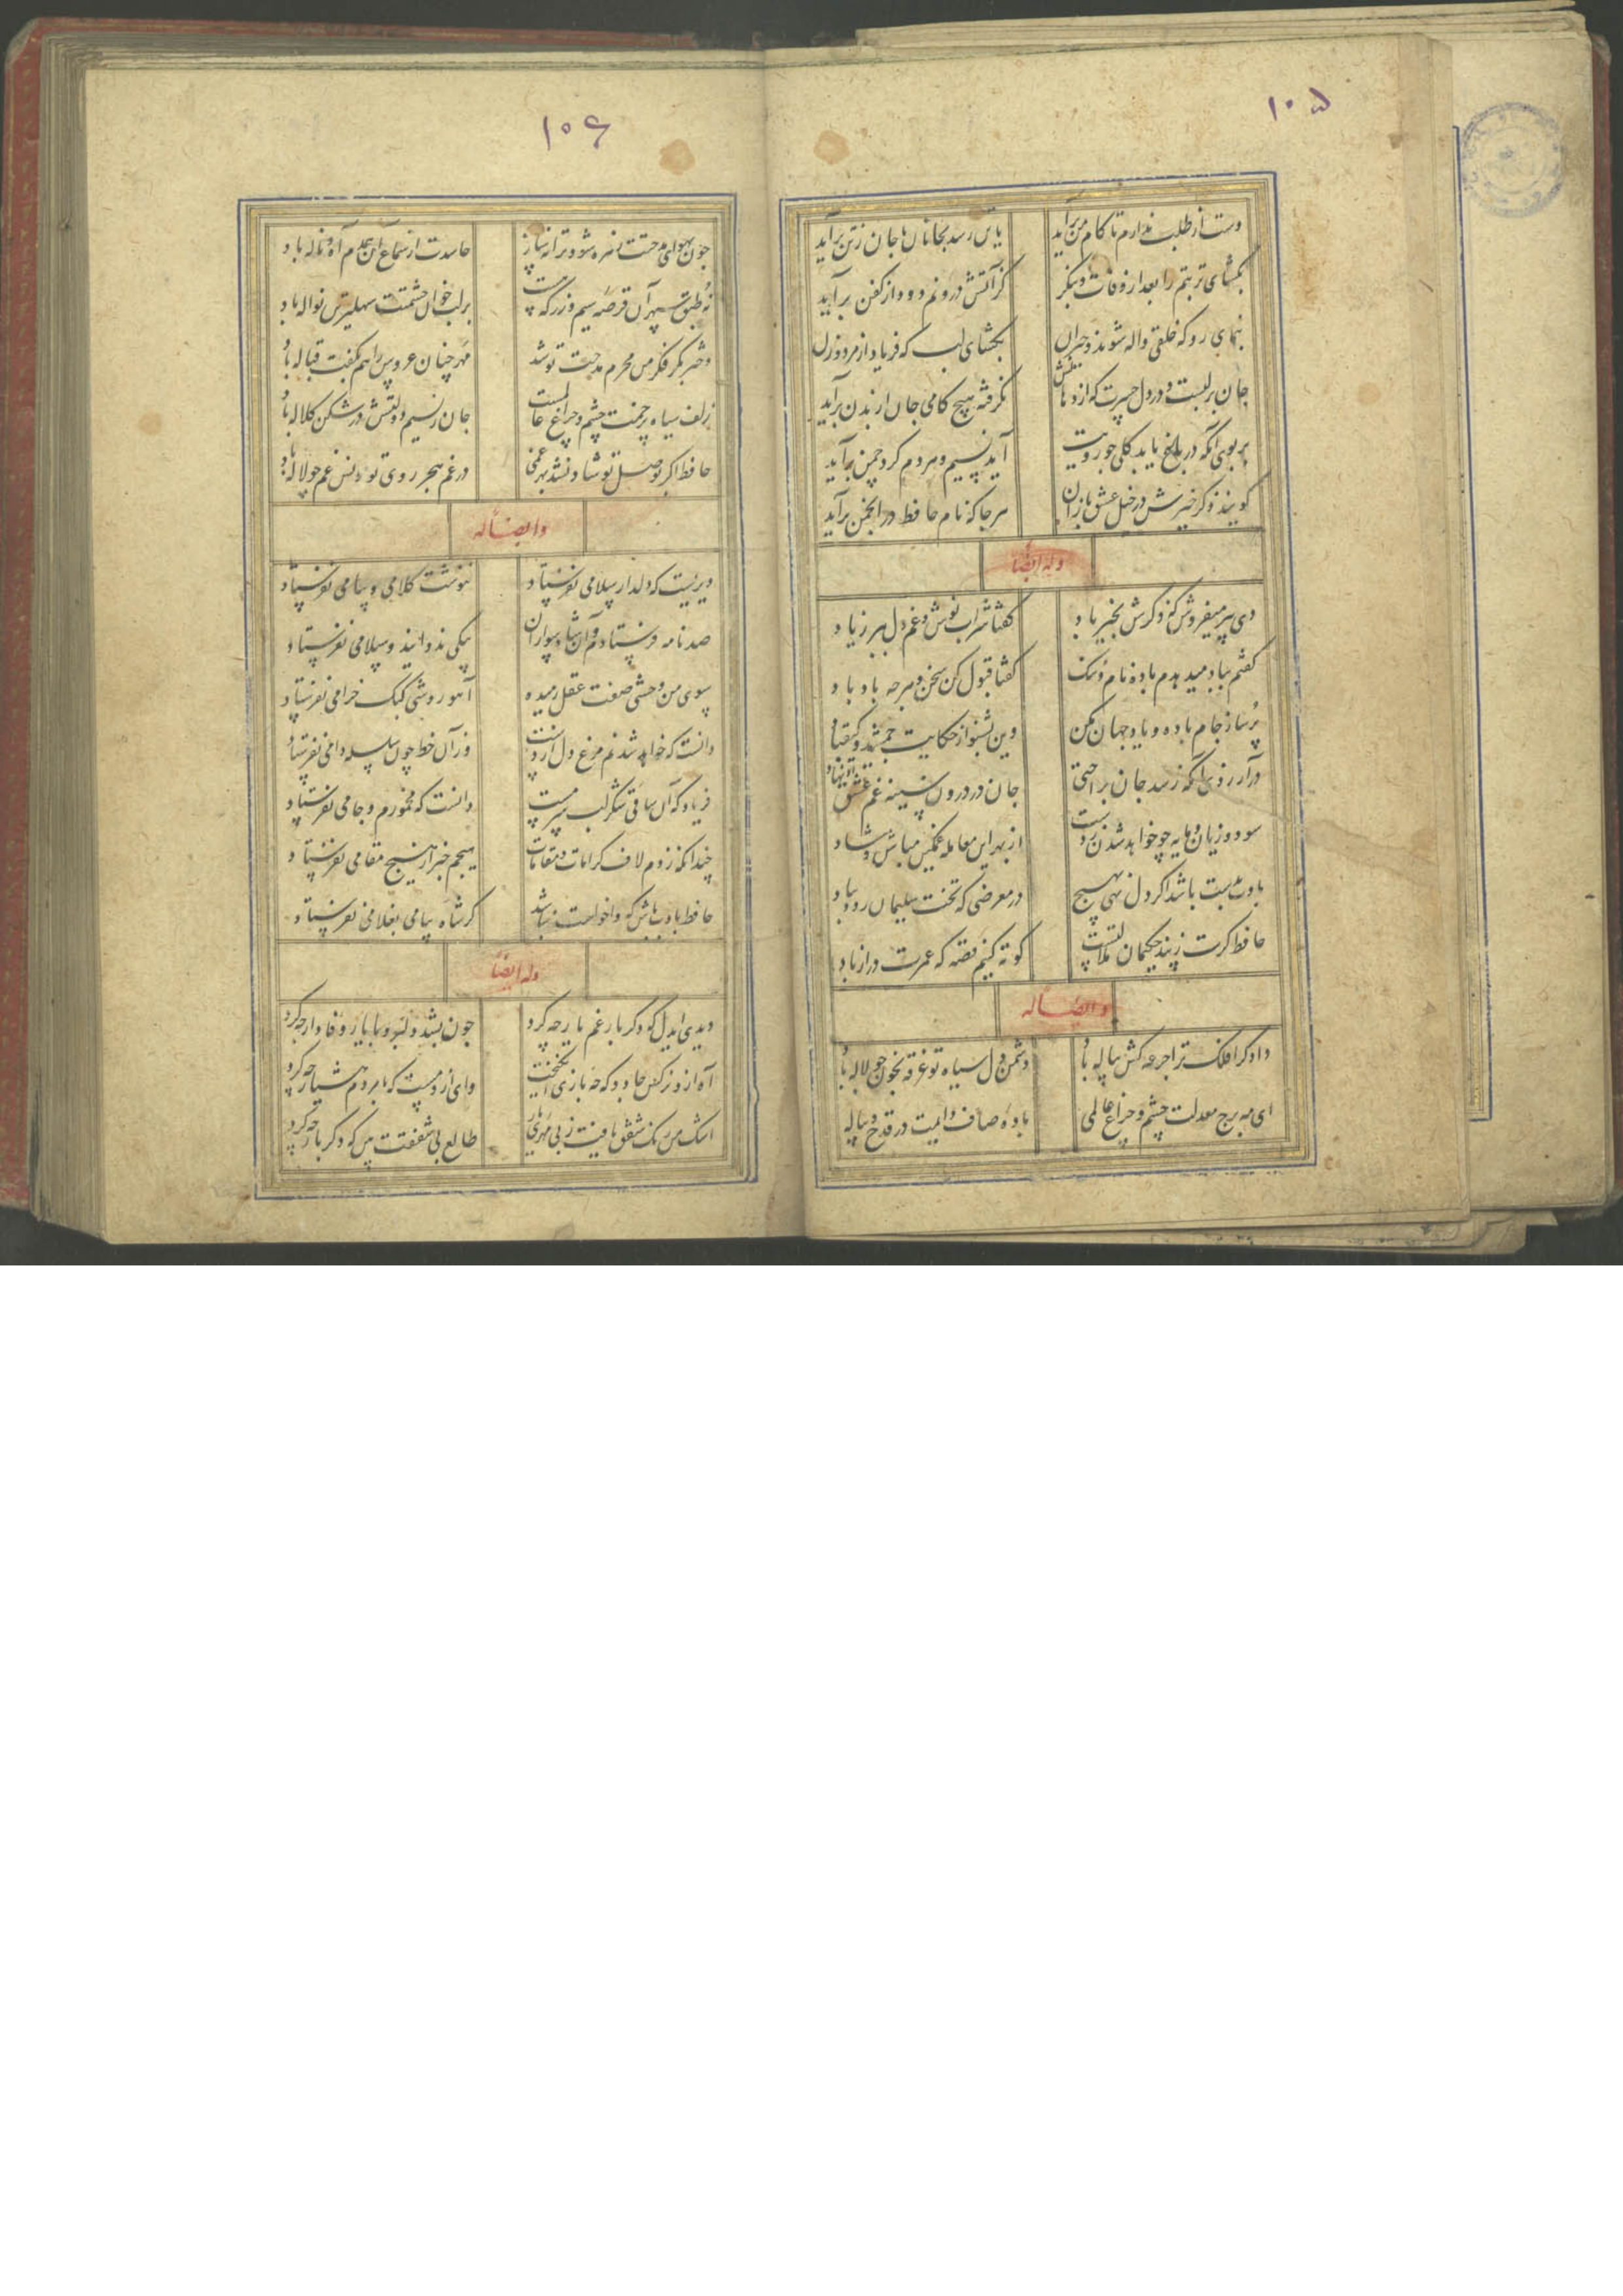 ۱۰۵
دست از طلب ندارم تا کام من برآید یا تن رسد بجانان یا جان ز تن برآید
بکشای تربتم را بعد از وفات و بنکر کز آتش درونم دود از کفن برآید
بنمای رو که خلقی واله شوند و حیران بکشای لب که فریاد از مرد و زن
جان بر لبست و در دل حسرت که از دهانش نکرفته هیچ کامی جان از بدن برآید
بر بوی آنکه در باغ یابد کلی چو رویت آید نسیم و هر دم کرد چمن برآید
کویند ذکر خیرش در خیل عشق بازان هرجا که نام حافظ در انجمن برآید
وله ایضا
دی پیر میفروش که ذکرش بخیر باد کفتا شراب نوش و غم دل ببر ز یاد
کفتم بباد میدهدم باده نام و ننک کفتا قبول کن سخن و هرچه باد باد
پر ساز جام باده و یاد جهان مکن وین بشنو از حکایت جمشید و کیقباد
در آرزوی آنکه رسد جان براحتی جان در درون سینه غم عشق او نهاد
سود و زیان و مایه چو خواهد شدن ز دست از بهر این معامله غمکین مباش و شاد
بادت بدست باشد اکر دل نهی بهیچ در معرضی که تخت سلیمان رود بباد
حافظ کرت ز پند حکیمان ملالتست کوته کنیم قصه که عمرت دراز باد
و ایضاً له
دادکرا فلک ترا جرعه کش پیاله باد دشمن دل سیاه تو غرقه بخون چو لاله باد
ای مه برج معدلت چشم و چراغ عالمی باده صاف دایمت در قدح و پیاله
۱۰۶
چون بهوای مدحتت زهره شود ترانه ساز حاسدت از سماع آن همدم آه و ناله باد
نه طبق سپهر آن قرصه سیم و زر که هست بر لب خوان حشمتت سهلترین نواله باد
دختر بکر فکر من محرم مدحت تو شد مهر چنان عروس را هم بکفت قباله باد
زلف سیاه پرخمت چشم و چراغ عالمست جان ز نسیم دولتش در شکن کلاله باد
حافظ اکر بوصل تو شاد نشد بهر غمی در غم هجر روی تو چو لاله باد
و ایضاً له
دیریست که دلدار سلامی نفرستاد ننوشت کلامی و پیامی نفرستاد
صد نامه فرستادم و آن شاه سواران پیکی ندوانید و سلامی نفرستاد
سوی من وحشی صفت عقل رمیده آهو روشی کبک خرامی نفرستاد
دانست که خواهد شدنم مرغ دل از دست وز آن خط چون سلسله دامی نفرستاد
فریاد که آن ساقی شکر لب سرمست دانست که مخمورم و جامی نفرستاد
چندانکه زدم لاف کرامات و مقامات هیچم خبر از هیچ مقامی نفرستاد
حافظ بادب باش که واخواست نباشد کر شاه پیامی بغلامی نفرستاد
وله ایضاً
دیدی ایدل که دکر بار غم یار چه کرد چون بشد دلبر و با یار وفادار چه کرد
آه از آن نرکس جادو که چه بازی انکیخت وای از آن مست که با مردم هشیار چه کرد
اشک من رنک شفق یافت ز بی مهری یار طالع بی شفقت بین که دکر بار چه کرد